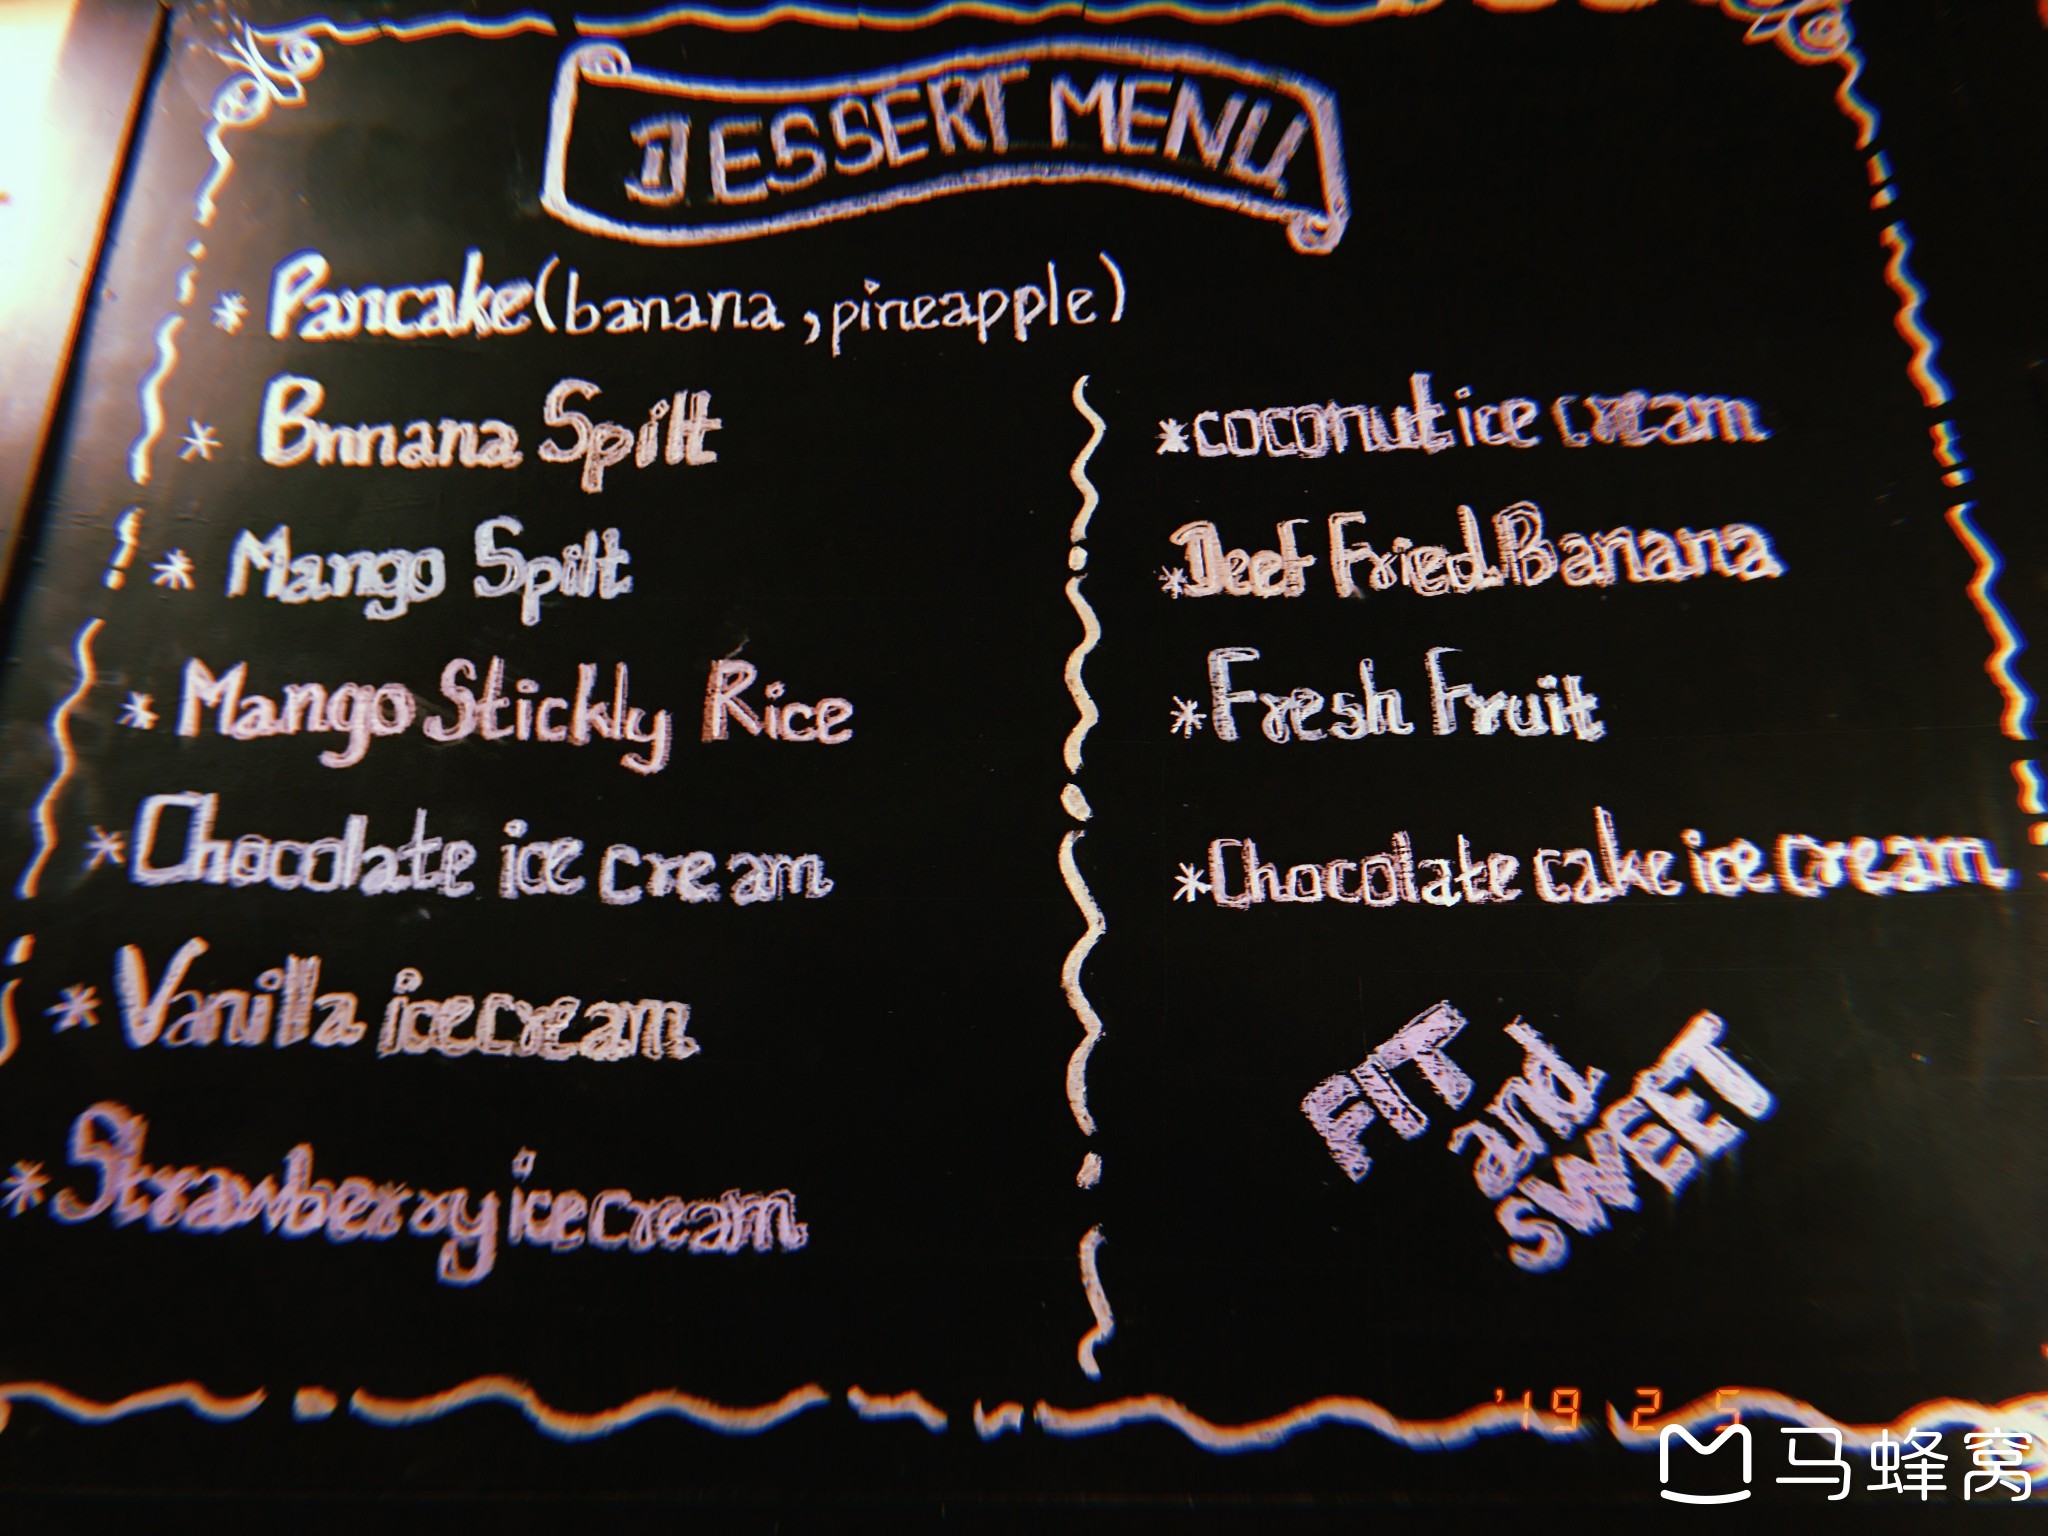 DESSERT MENU
* Pancake (banana, pineapple)
* Bnnana Spilt
* Mango Spilt
* Mango Stickly Rice
* Chocolate ice cream
* Vanilla icecream
* Strawberry ice cream
* coconut ice cream
* Deef Fried Banana
* Fresh Fruit
* Chocolate cake ice cream
FIT
and
SWEET
'19 2 5
马蜂窝